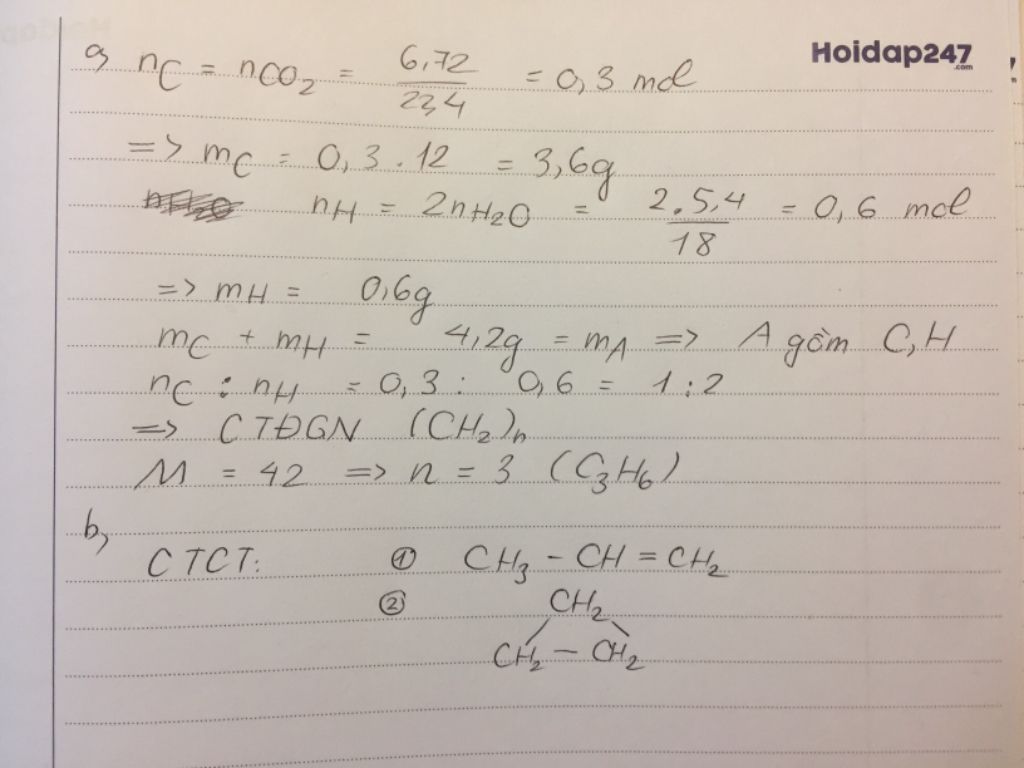 Hoidap247
.com
a, nC = nCO2 = 6,72 / 22,4 = 0,3 mol
=> mC = 0,3 . 12 = 3,6g
nH = 2nH2O = 2.5,4 / 18 = 0,6 mol
=> mH = 0,6g
mC + mH = 4,2g = mA => A gồm C, H
nC : nH = 0,3 : 0,6 = 1 : 2
=> CTĐGN (CH2)n
M = 42 => n = 3 (C3H6)
b,
CTCT: ① CH3 - CH = CH2
② CH2
CH2 - CH2